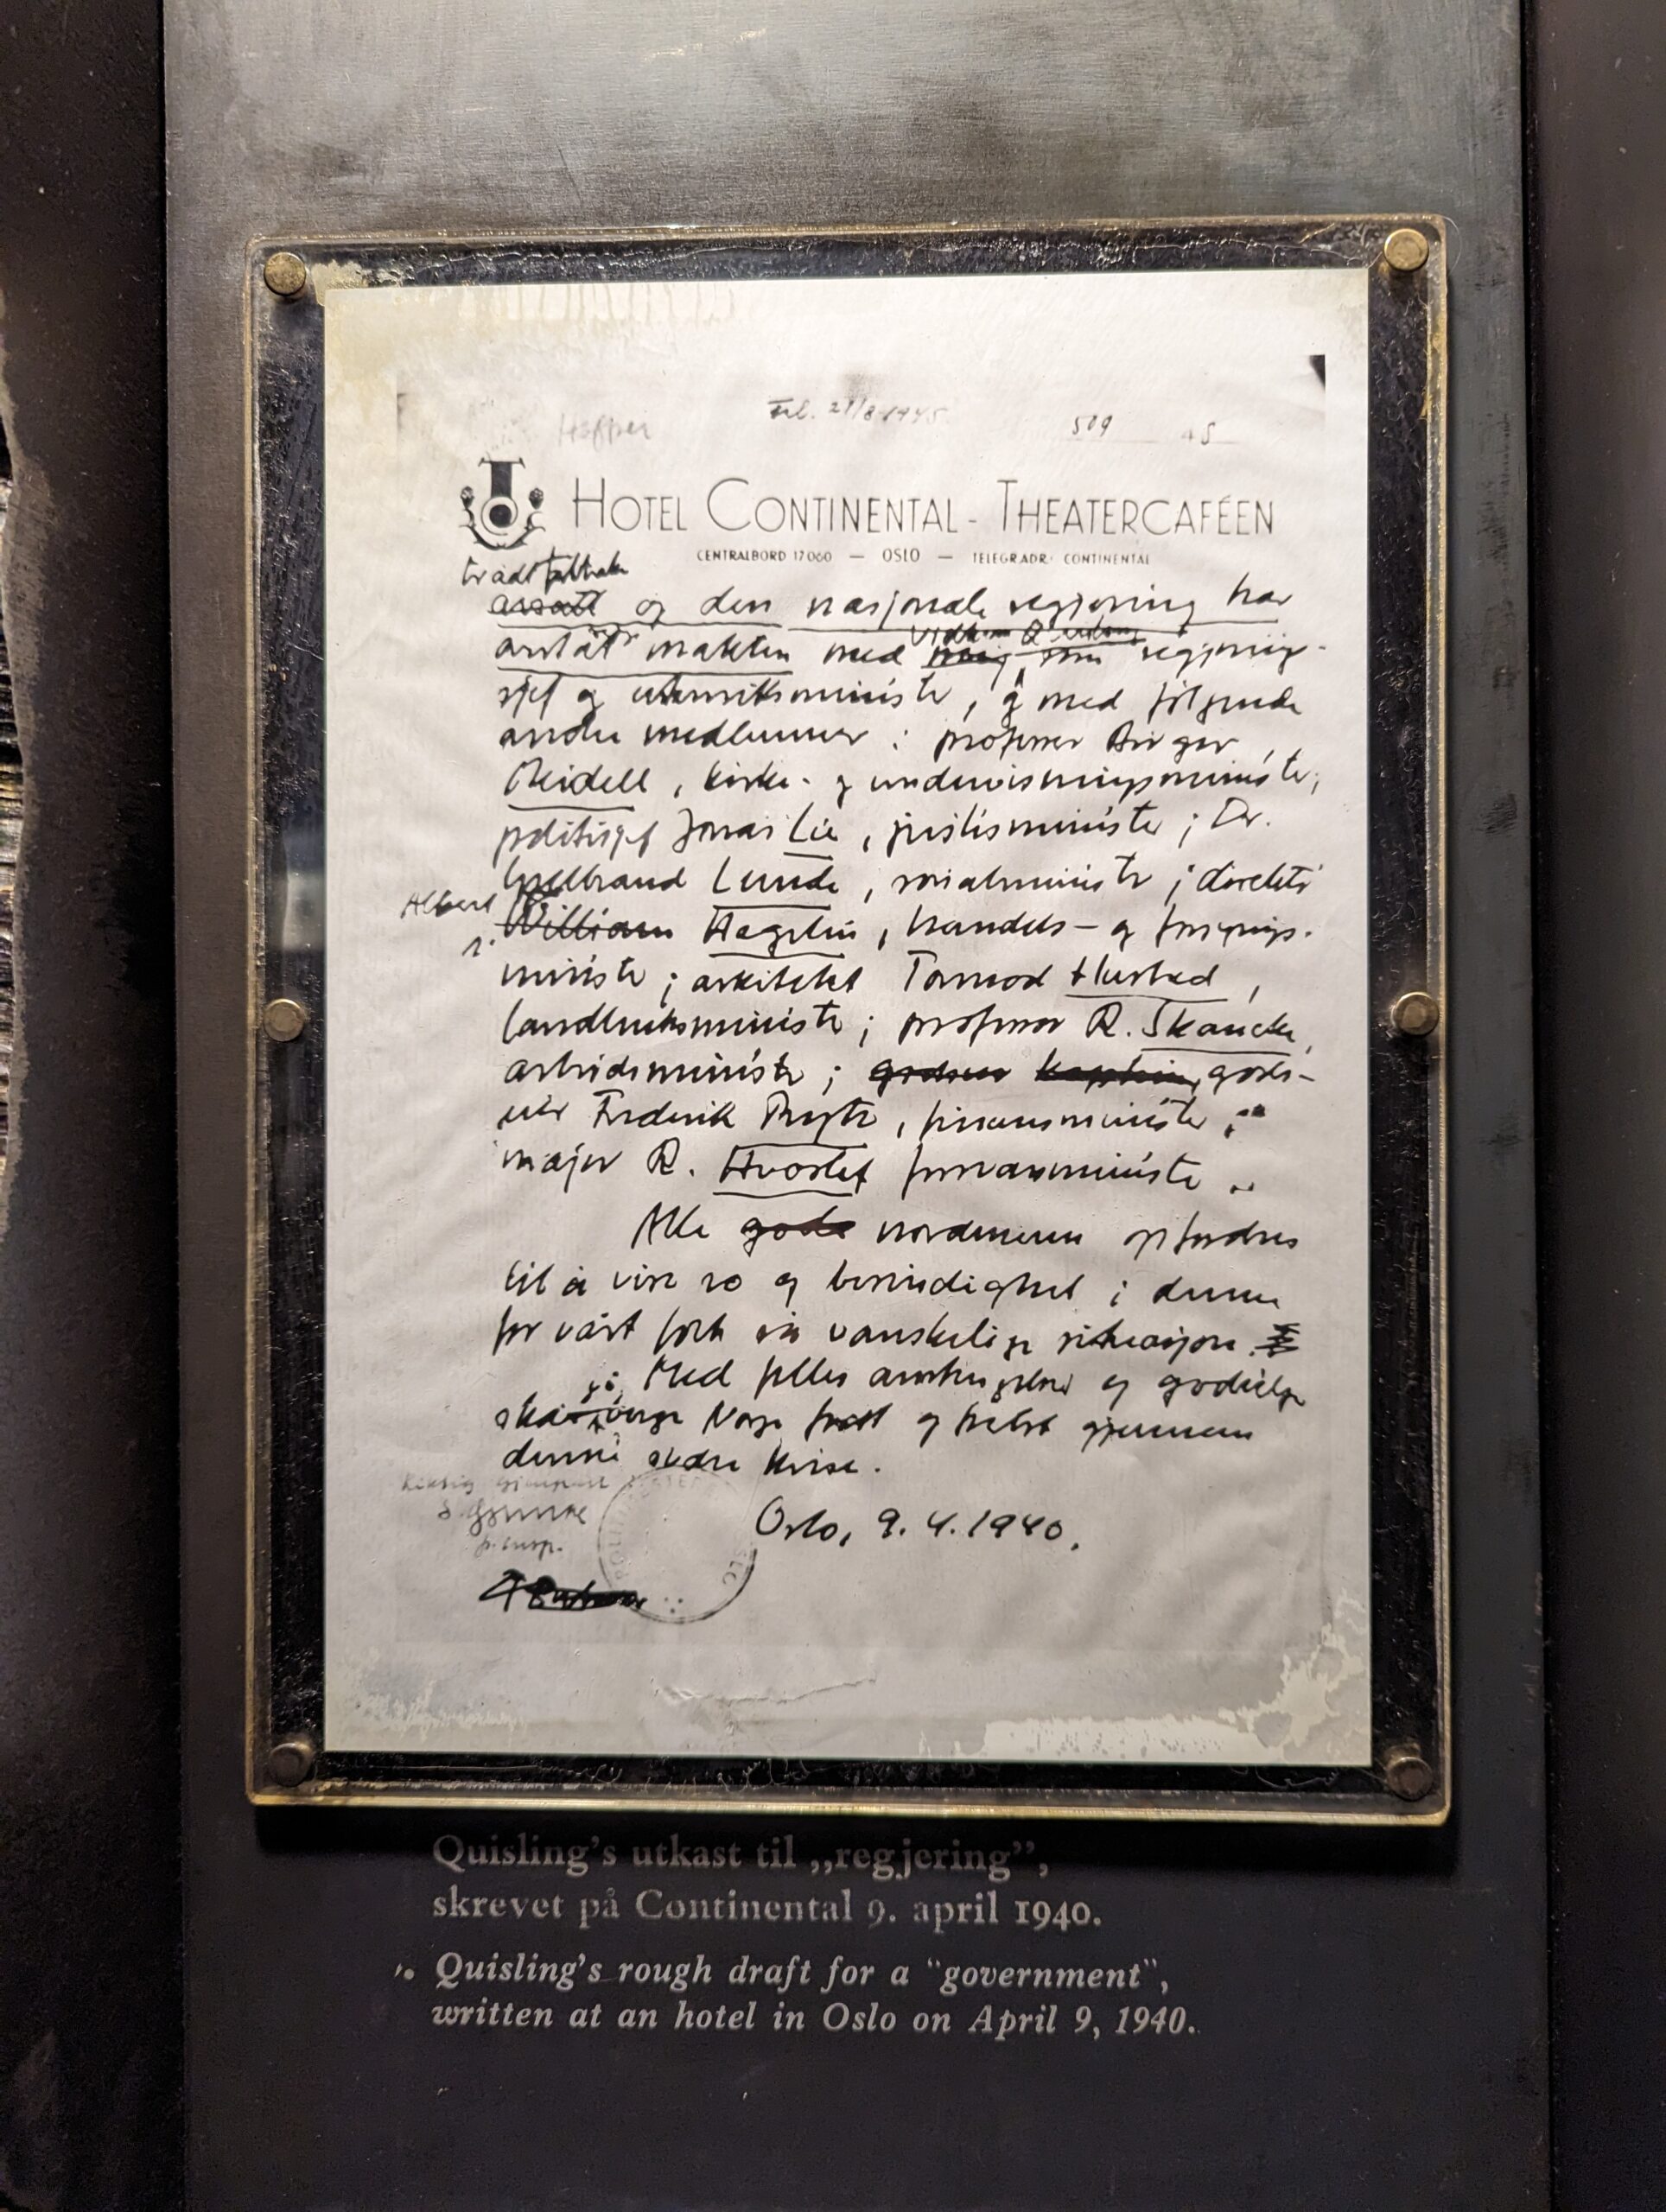 509
HOTEL CONTINENTAL - THEATERCAFÉEN
CENTRALBORD 17060 — OSLO — TELEGR.ADR: CONTINENTAL
trådt tilbake
avsatt og den nasjonale regjering har
makten med meg Vidkun Quisling som regjerings-
sjef og utenriksminister, og med følgende
andre medlemmer: professor Birger
Meidell, kirke- og undervisningsminister;
politisjef Jonas Lie, justisminister; Dr.
Gulbrand Lunde, sosialminister; direktør
Albert
William Hagelin, handels- og forsynings-
minister; arkitekt Tormod Hustad,
landbruksminister; professor R. Skancke,
arbeidsminister; kaptein gods-
eier Frederik Prytz, finansminister;
major R. Hvoslef forsvarsminister.
Alle gode nordmenn opfordres
til å vise ro og besindighet i denne
for vårt folk så vanskelige situasjon.
Med felles anstrengelser og godvilje
skal vi berge Norge fritt og frelst gjennem
denne svære krise.
Oslo, 9.4.1940.
Quisling's utkast til „regjering”,
skrevet på Continental 9. april 1940.
Quisling's rough draft for a "government",
written at an hotel in Oslo on April 9, 1940.